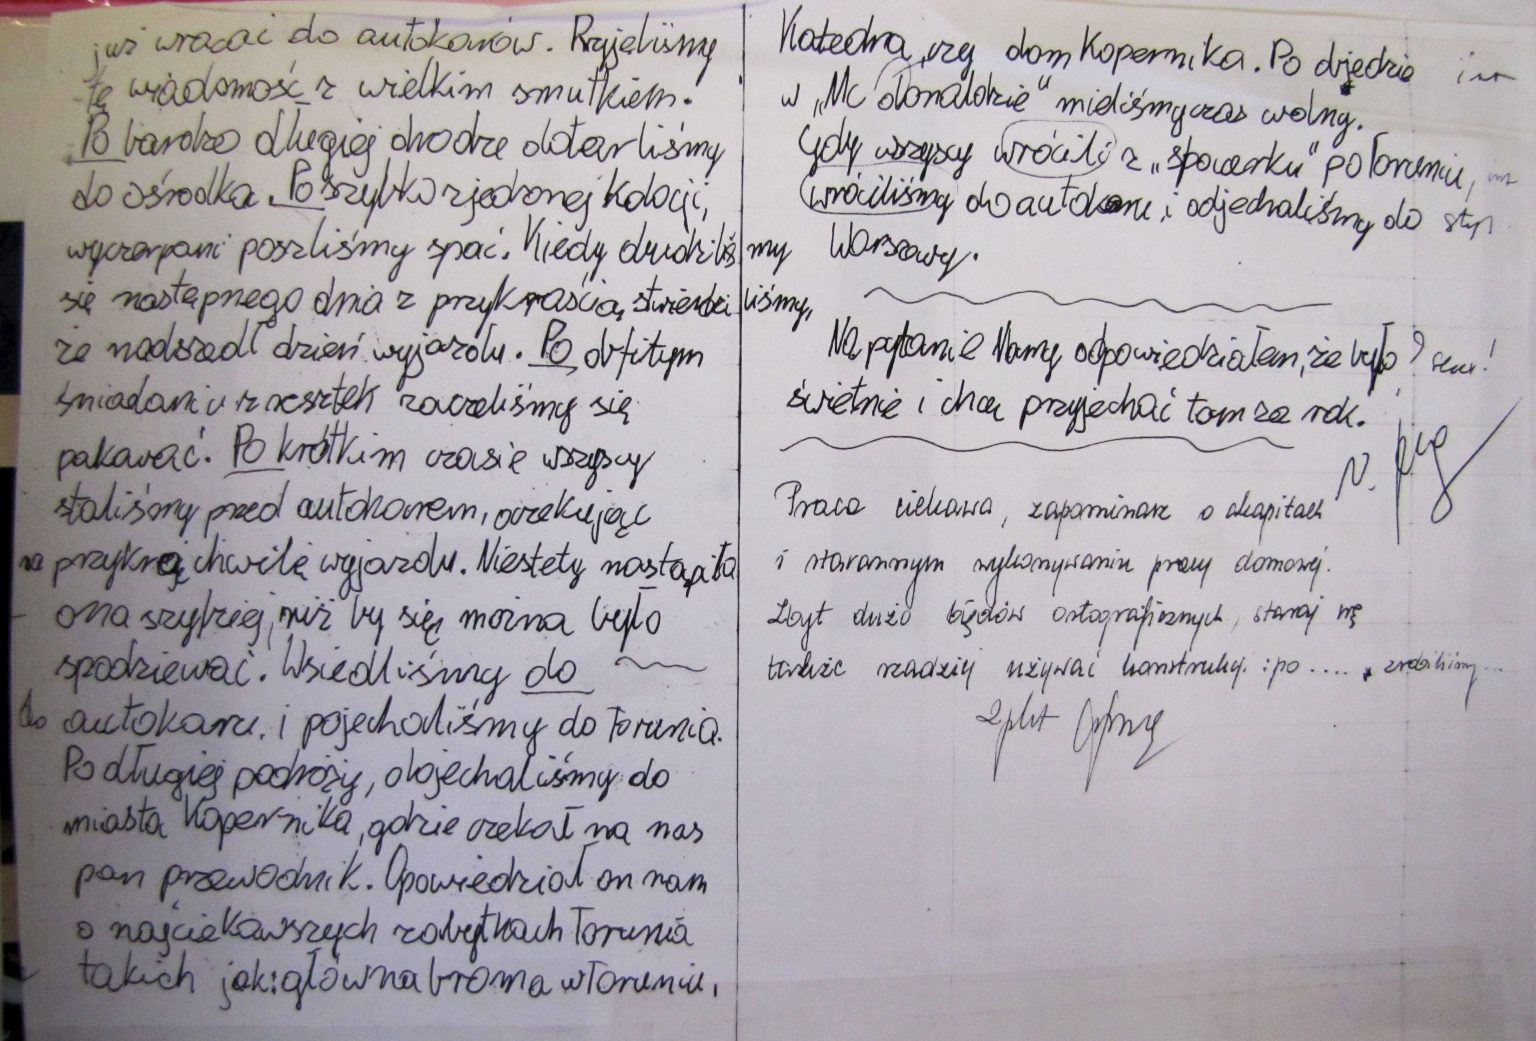 już wracać do autokarów. Przyjeliśmy
tę wiadomość z wielkim smutkiem.
Po bardzo długiej drodze dotarliśmy
do ośrodka. Po szybko zjedzonej kolacji,
wyczerpani poszliśmy spać. Kiedy
się następnego dnia z przykraścią stwierdziliśmy,
że nadszedł dzień wyjazdu. Po obfitym
śniadaniu z resztek zaczeliśmy się
pakawać. Po krótkim czasie wszyscy
staliśmy przed autokarem, oczekując
na przykrą chwilę wyjazdu. Niestety nastąpiła
ona szybciej, niż by się można było
spodziewać. Wsiedliśmy do
do autokaru, i pojechaliśmy do Torunia.
Po długiej podróży, dojechaliśmy do
miasta Kopernika, gdzie czekał na nas
pan przewodnik. Opowiedział on nam
o najciekawszych zabytkach Torunia
takich jak: główna brama w Toruniu,
Katedra, czy dom Kopernika. Po objedzie
w „Mc Donaldzie" mieliśmy czas wolny.
Gdy wszyscy wrócili z „spacerku" po Toruniu,
wróciliśmy do autokaru, i odjechaliśmy do styl
Warszawy.
Na pytanie Mamy odpowiedziałem, że było ? sens!
świetnie i chcę przyjechać tam za rok.
Praca ciekawa, zapominasz o akapitach
i starannym wykonywaniu pracy domowej.
Zbyt dużo błędów ortograficznych, staraj się
także rzadziej używać konstrukcji: po .... zrobiliśmy...